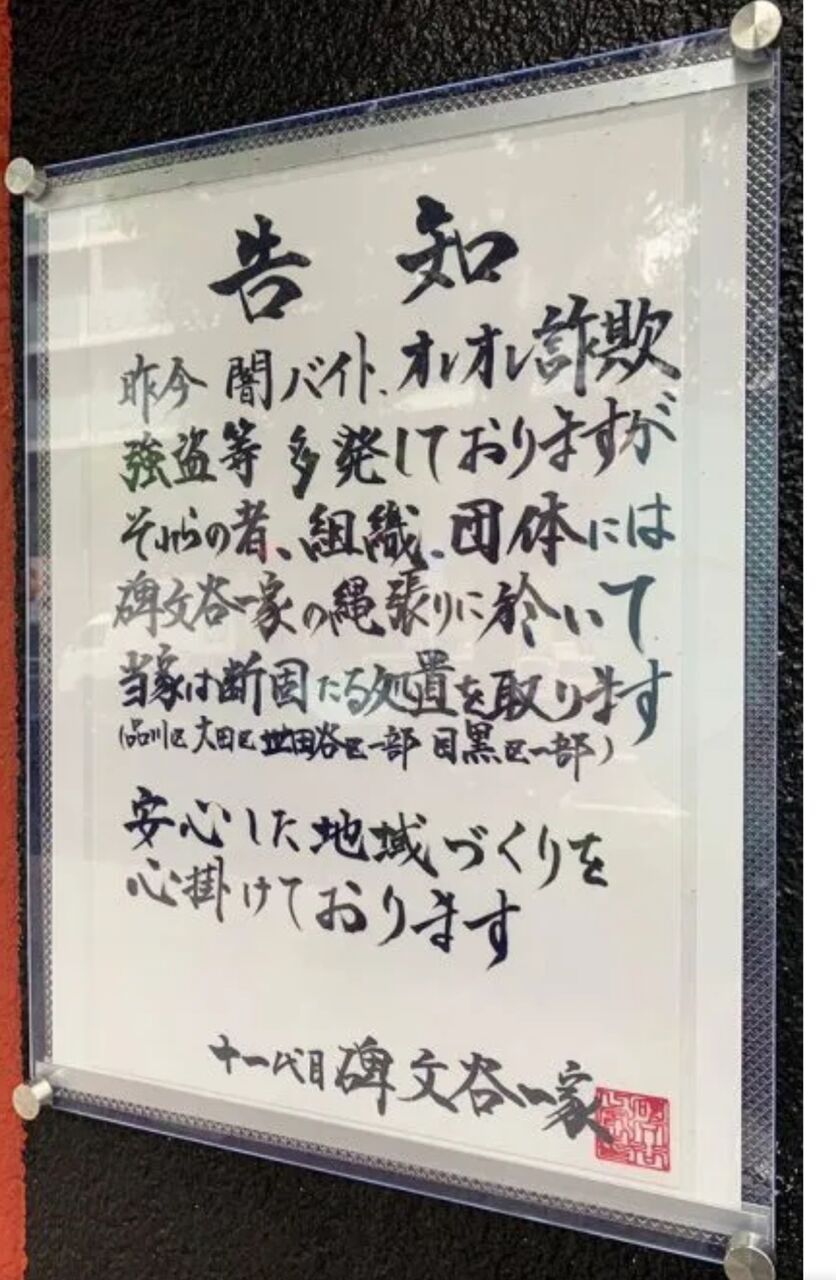 告知
昨今 闇バイト、オレオレ詐欺
強盗等 多発しておりますが
それらの者、組織、団体には
碑文谷一家の縄張りに於いて
当家は断固たる処置を取ります
(品川区 大田区 世田谷区一部 目黒区一部)
安心した地域づくりを
心掛けております
十一代目 碑文谷一家